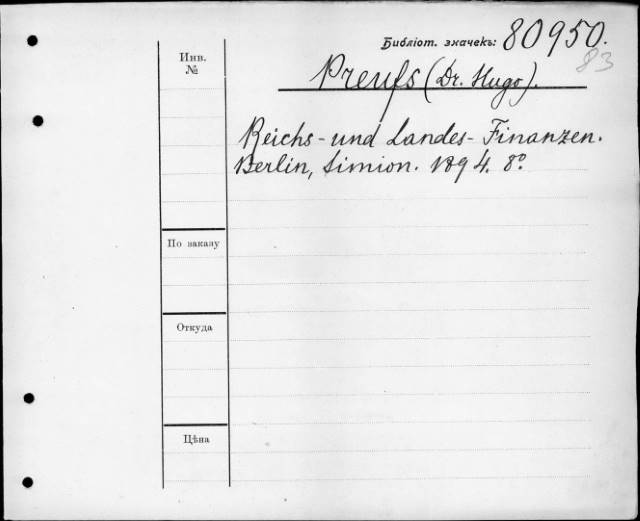 Библіот. значекъ: 80950.
83
Инв.
№
Preuſs (Dr. Hugo).
Reichs- und Landes-Finanzen.
Berlin, Simion. 1894. 8º.
По заказу
Откуда
Цѣна